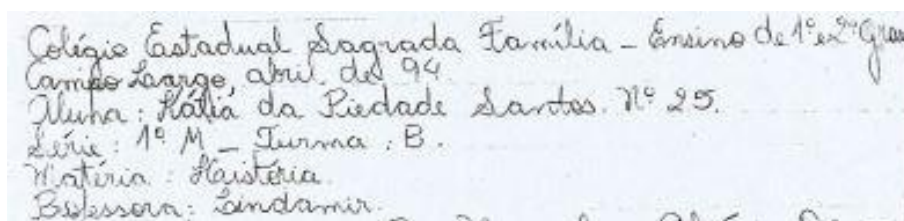 Colégio Estadual Sagrada Família - Ensino de 1º e 2º Grau
Campo Largo, abril de 94.
Aluna: Kátia da Piedade Santos. Nº 25.
Série: 1º M - Turma: B.
Matéria: História.
Professora: Lindamir.